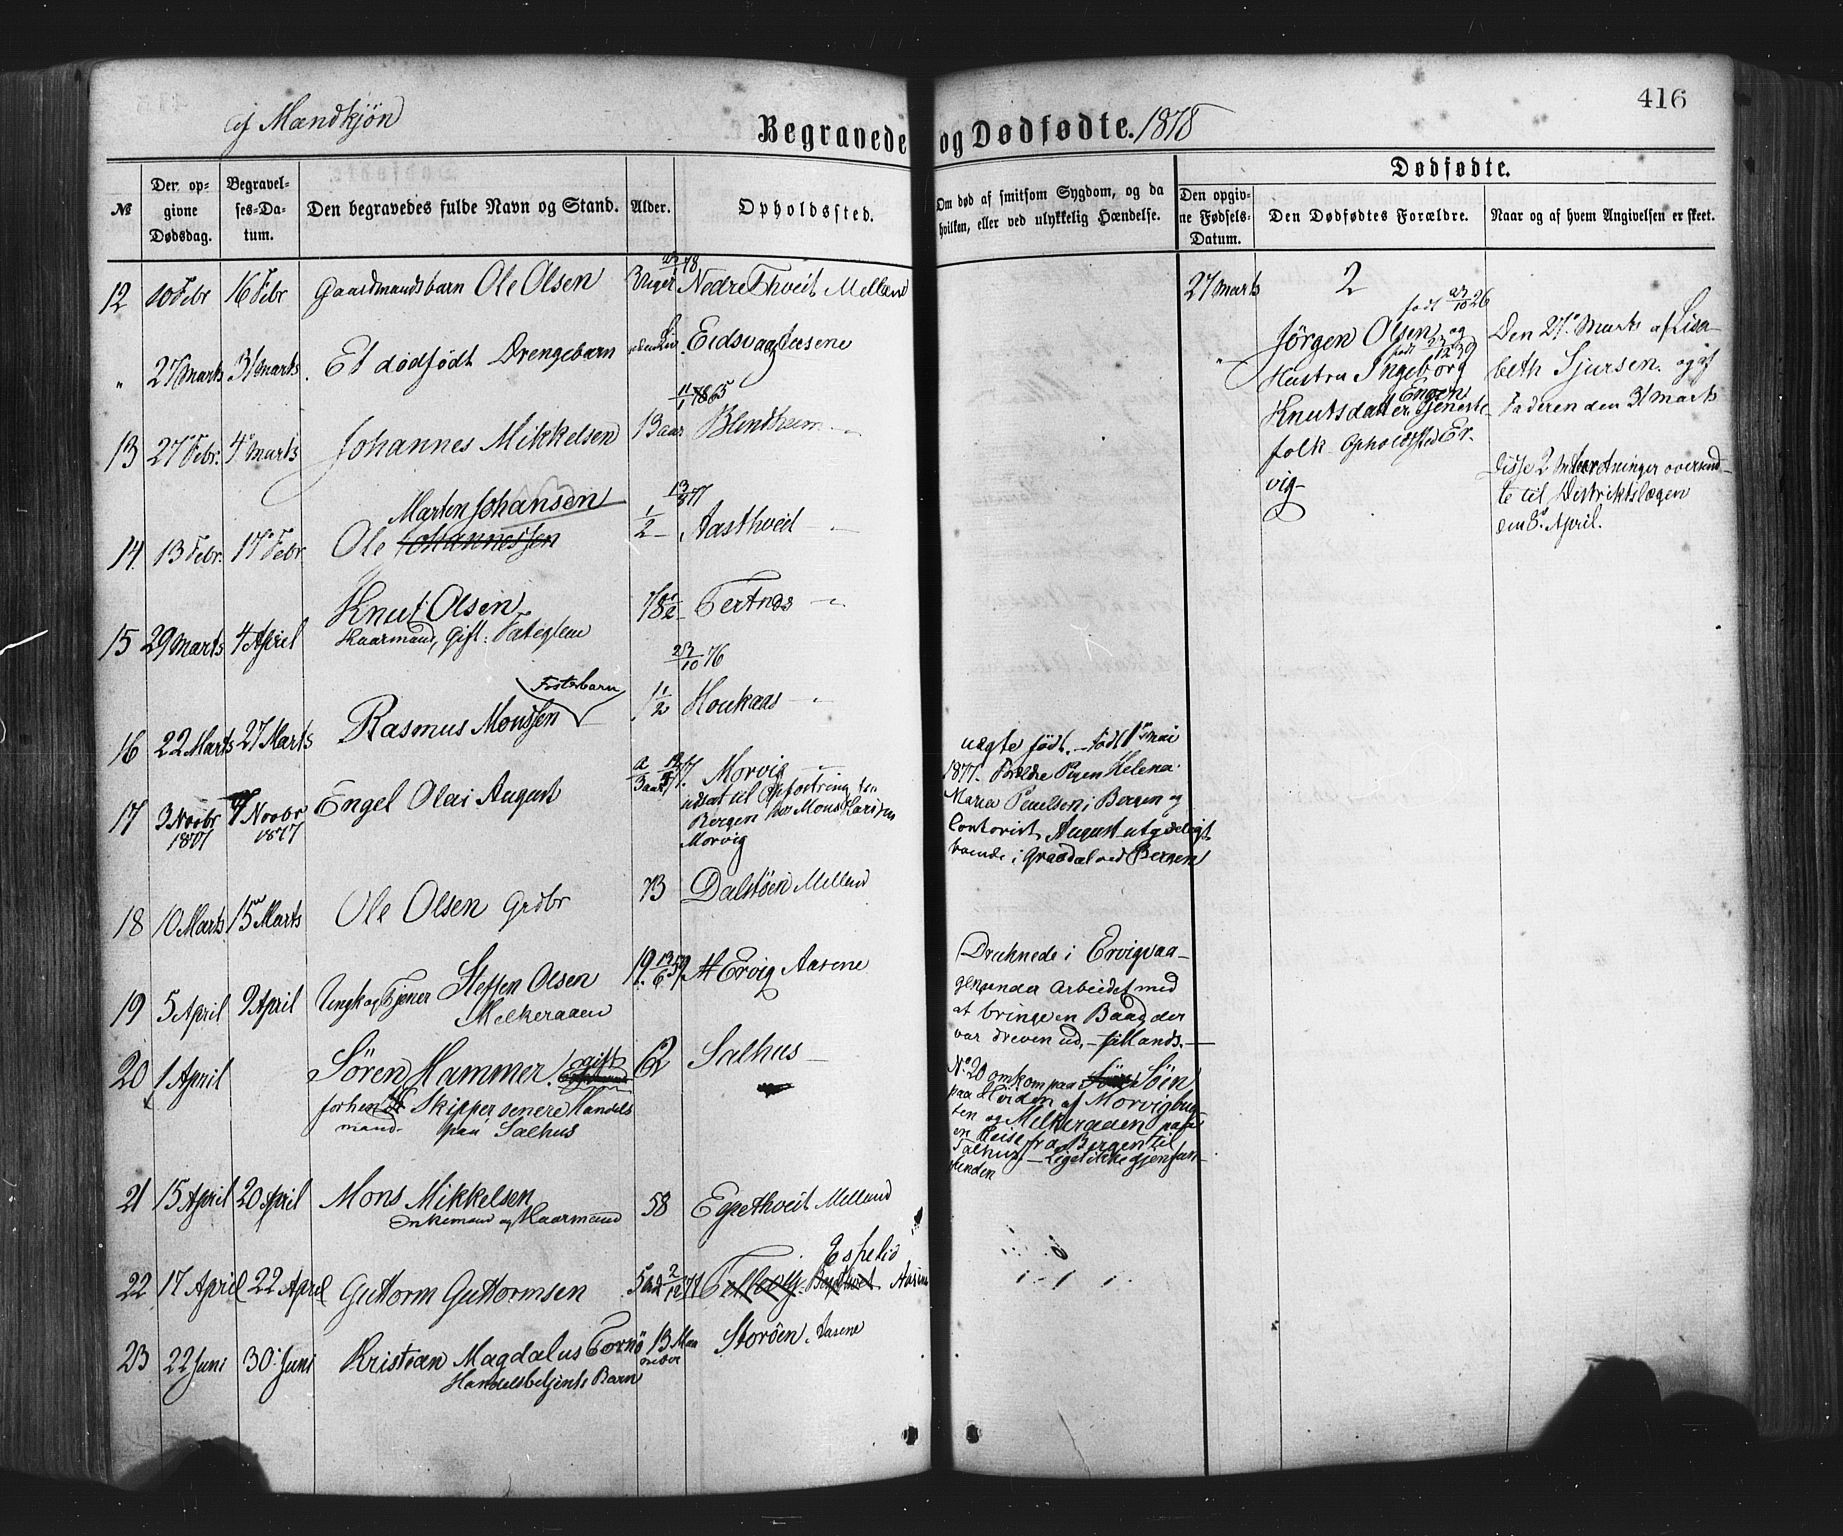 416
af Mandkjøn
Begravede og Dødfødte. 1878
№
Den opgivne Dødsdag.
Begravelses-Datum.
Den begravedes fulde Navn og Stand.
Alder.
Opholdssted.
Om død af smitsom Sygdom, og da hvilken, eller ved ulykkelig Hændelse.
Dødfødte.
Den opgivne Fødsels-Datum.
Den Dødfødtes Forældre.
Naar og af hvem Angivelsen er skeet.
12 10 Febr 16 Febr Gaardmandsbarn Ole Olsen 3 Uger Nedre Thveit Melland
27 Marts 2
" 27 Marts 31 Marts Et dødfødt Drengebarn Eidsvaag Aasene
Jörgen Olsen og
født 23/10 26
Hustru Ingeborg
Knutsdatter Tjeneste-
folk Opholdsted Er-
vig
Den 27 Marts af Lisa-
beth Sjursen og af
Faderen den 31 Marts
Disse 2 Indberetninger oversend-
te til Distriktslægen
den 3 April.
13 27 Febr. 4 Marts Johannes Mikkelsen 13 aar Blindheim
14 13 Febr. 17 Febr Ole Johannessen 1/2 Aasthveit
Marten Johansen
15 29 Marts 4 April Knut Olsen 78 1/2 Tertnes
Kaarmand, Gift.
23/10 76
16 22 Marts 27 Marts Rasmus Monssen 1 1/2 Houkaas
Fosterbarn
17 3 Novbr 1877 Novbr 1877 Engel Olai August Morvig
udsat til Opfostring fra
Bergen hos Mons Larsen
Morvig
uægte født. - født 1 mai
1877. Forældre Pigen Helena
Maria Paulsen i Bergen og
Contorist August
boende i Graadal ved Bergen
18 10 Marts 15 Marts Ole Olsen Grdbr 73 Dalstöen Melland
19 5 April 9 April Ungk og Tjener Steffen Olsen 19 13/6 59 Ervig Aasene
Melkeraaen
Druknede i Ervigvaa-
gen under Arbeidet med
at bringe en Baad der
var dreven ud, - tillands.
20 1 April Sören Hammer gift 62 Salhus
forhen Skipper senere Handels
mand paa Salhus
No 20 omkom paa Söen
paa Höiden af Morvigbug-
ten og Melkeraaen paa
en Reise fra Bergen til
Salhus - Liget ikke gjenfun-
den
21 15 April 20 April Mons Mikkelsen 58 Eggethveit Melland
Enkemand og Kaarmand
22 17 April 22 April Guttorm Guttormsen 2/12 77 Espelid Aasene
23 22 Juni 30 Juni Kristian Magdalus Tornö 13 Maaneder Storöen Aasene
Handelsbetjents Barn